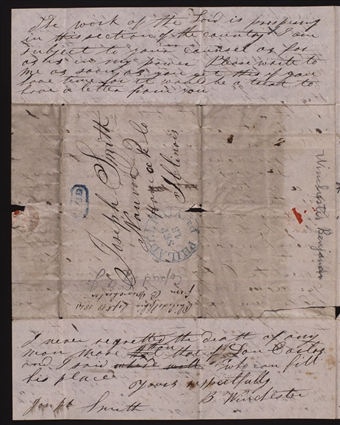 The work of the Lord is prospering
in this section of the country I am
subject to your counsel as far
as is in my power Please write to
me as soon as you get this if you
have time for it would be a treat to
have a letter from you
PAID
Joseph Smith
Nauvoo
Hancock Co
Illinois
PHILADELPHIA
SEP
Philadelphia Sept 18 1841
from B Winchester
Winchester Benjamin
I never regretted the death of any
man more than that of Don Carlos
and I said who can fill
his place
Yours respectfully
B. Winchester
Joseph Smith